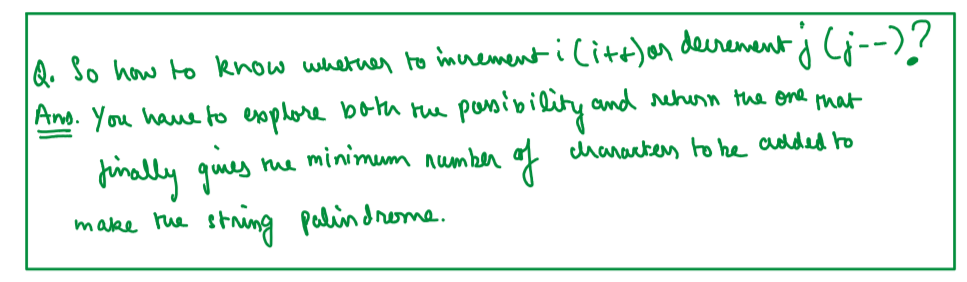 Q. So how to know whether to increment i (i++) or decrement j (j--)?
Ans. You have to explore both the possibility and return the one that
finally gives the minimum number of characters to be added to
make the string palindrome.